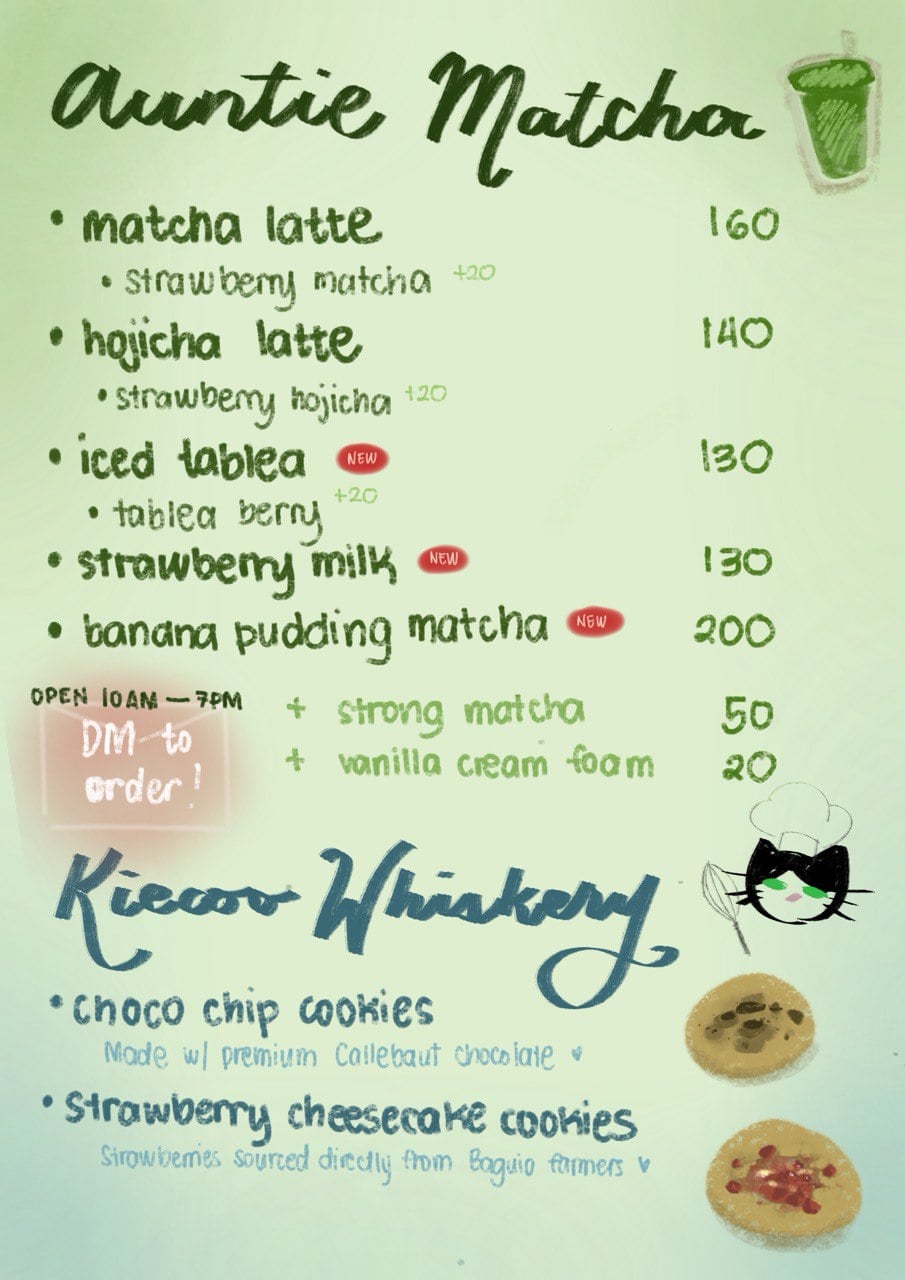 Auntie Matcha
• matcha latte 160
• strawberry matcha +20
• hojicha latte 140
• strawberry hojicha +20
• iced tablea NEW 130
• tablea berry +20
• strawberry milk NEW 130
• banana pudding matcha NEW 200
OPEN 10AM — 7PM
DM to
order!
+ strong matcha 50
+ vanilla cream foam 20
Kiecoo Whiskery
• choco chip cookies
Made w/ premium Callebaut chocolate ♥
• Strawberry cheesecake cookies
Strawberries sourced directly from Baguio farmers ♥